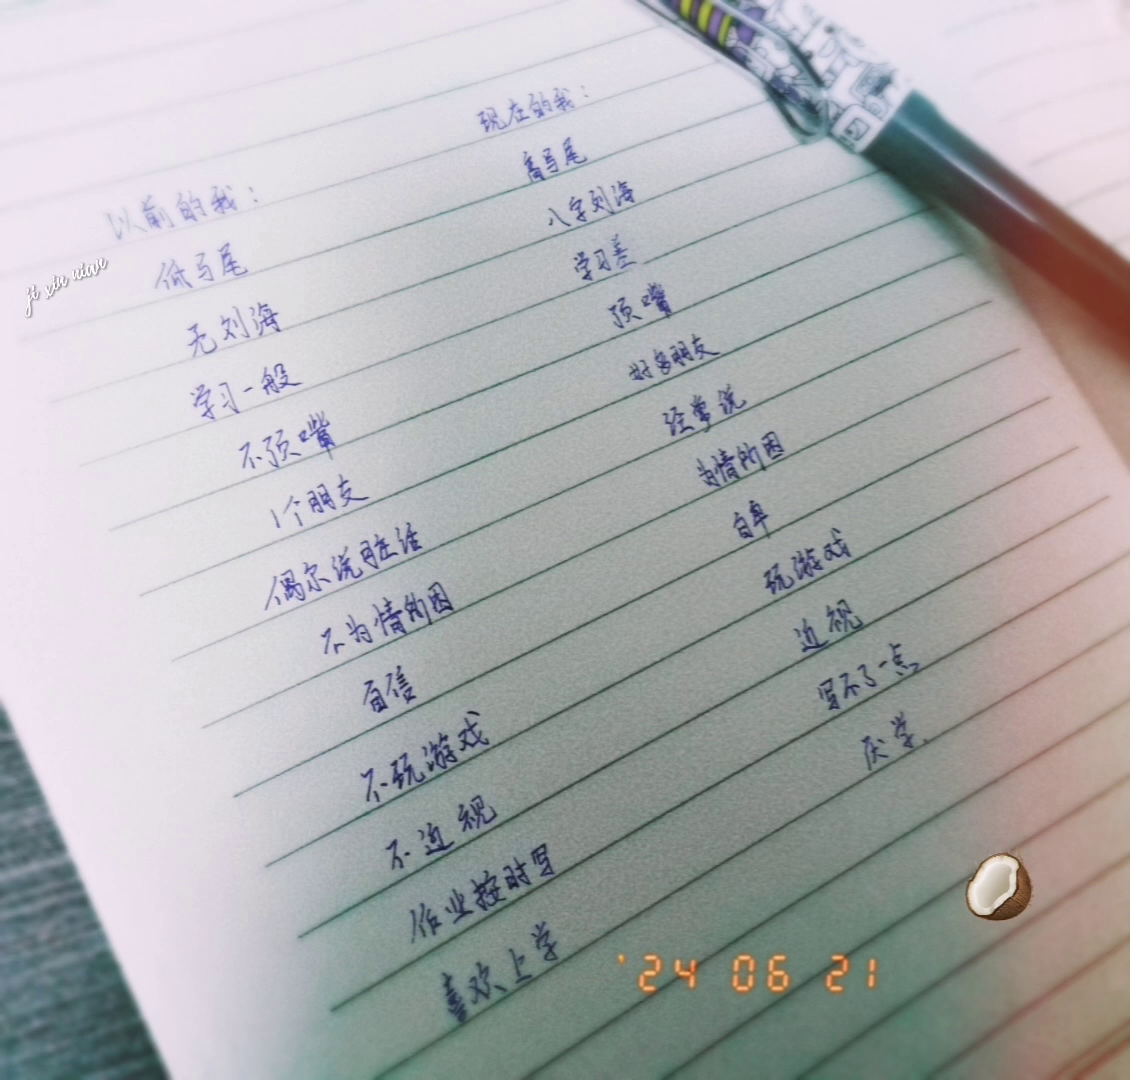 现在的我：
高马尾
八字刘海
学习差
顶嘴
好多朋友
经常说
为情所困
自卑
玩游戏
近视
写不了一点
厌学
以前的我：
低马尾
无刘海
学习一般
不顶嘴
1个朋友
偶尔说脏话
不为情所困
自信
不玩游戏
不近视
作业按时写
喜欢上学
ji xin nian
'24 06 21